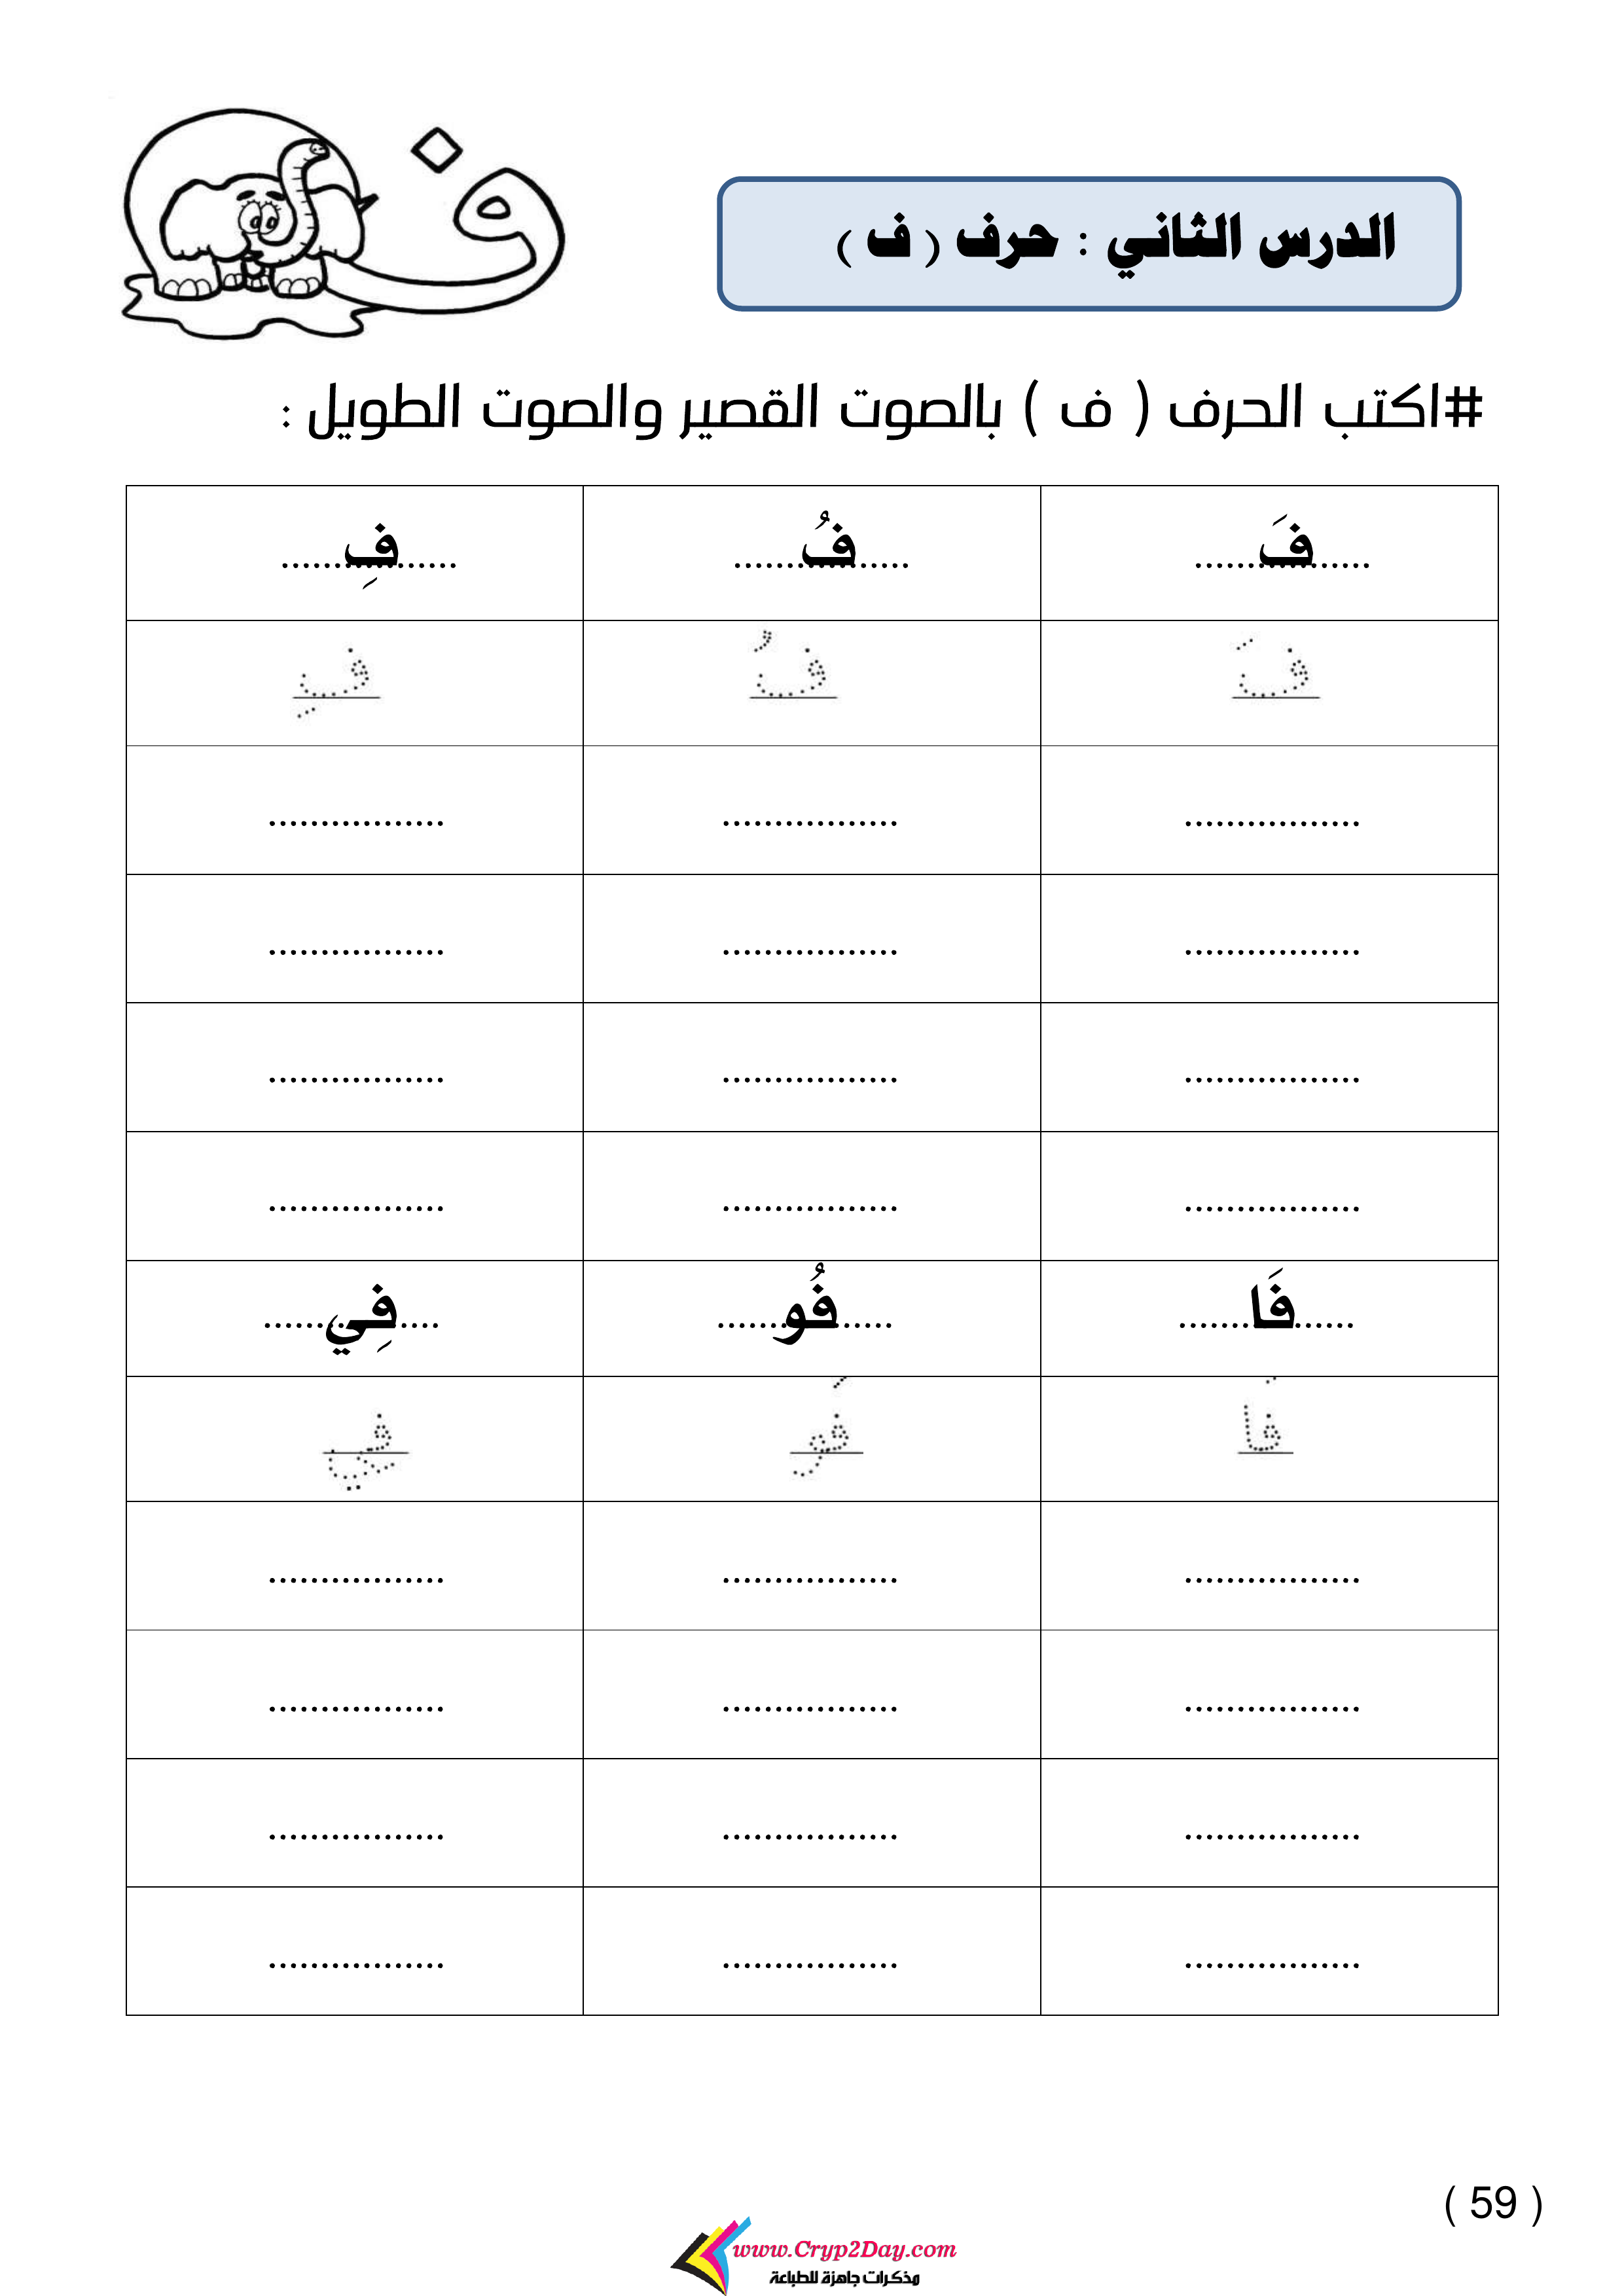 ف
الدرس الثاني : حرف ( ف )
#اكتب الحرف ( ف ) بالصوت القصير والصوت الطويل :
فَ................ فُ................ فِ................
فَ فُ فِ
................. ................. .................
................. ................. .................
................. ................. .................
................. ................. .................
فَا................. فُو................. فِي.................
فَا فُو في
................. ................. .................
................. ................. .................
................. ................. .................
................. ................. .................
( 59 )
www.Cryp2Day.com
مذكرات جاهزة للطباعة